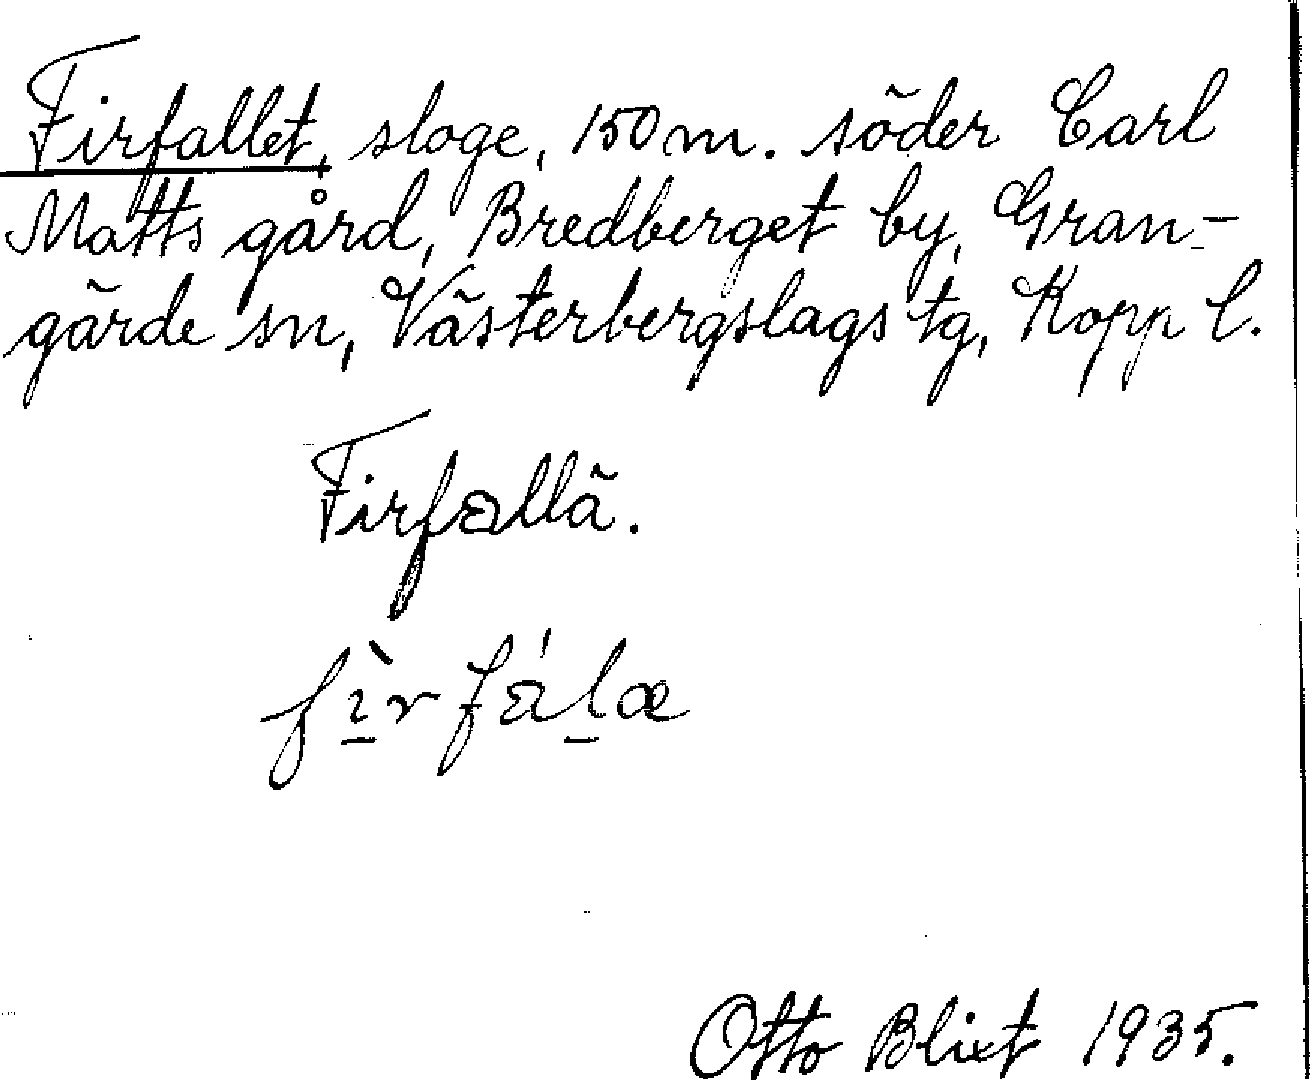 Firfallet, sloge, 150 m. söder Carl
Matts gård, Bredberget by, Gran-
gärde sn, Västerbergslags tg, Kopp l.
Firfallä.
fìrfálæ
Otto Blixt 1935.